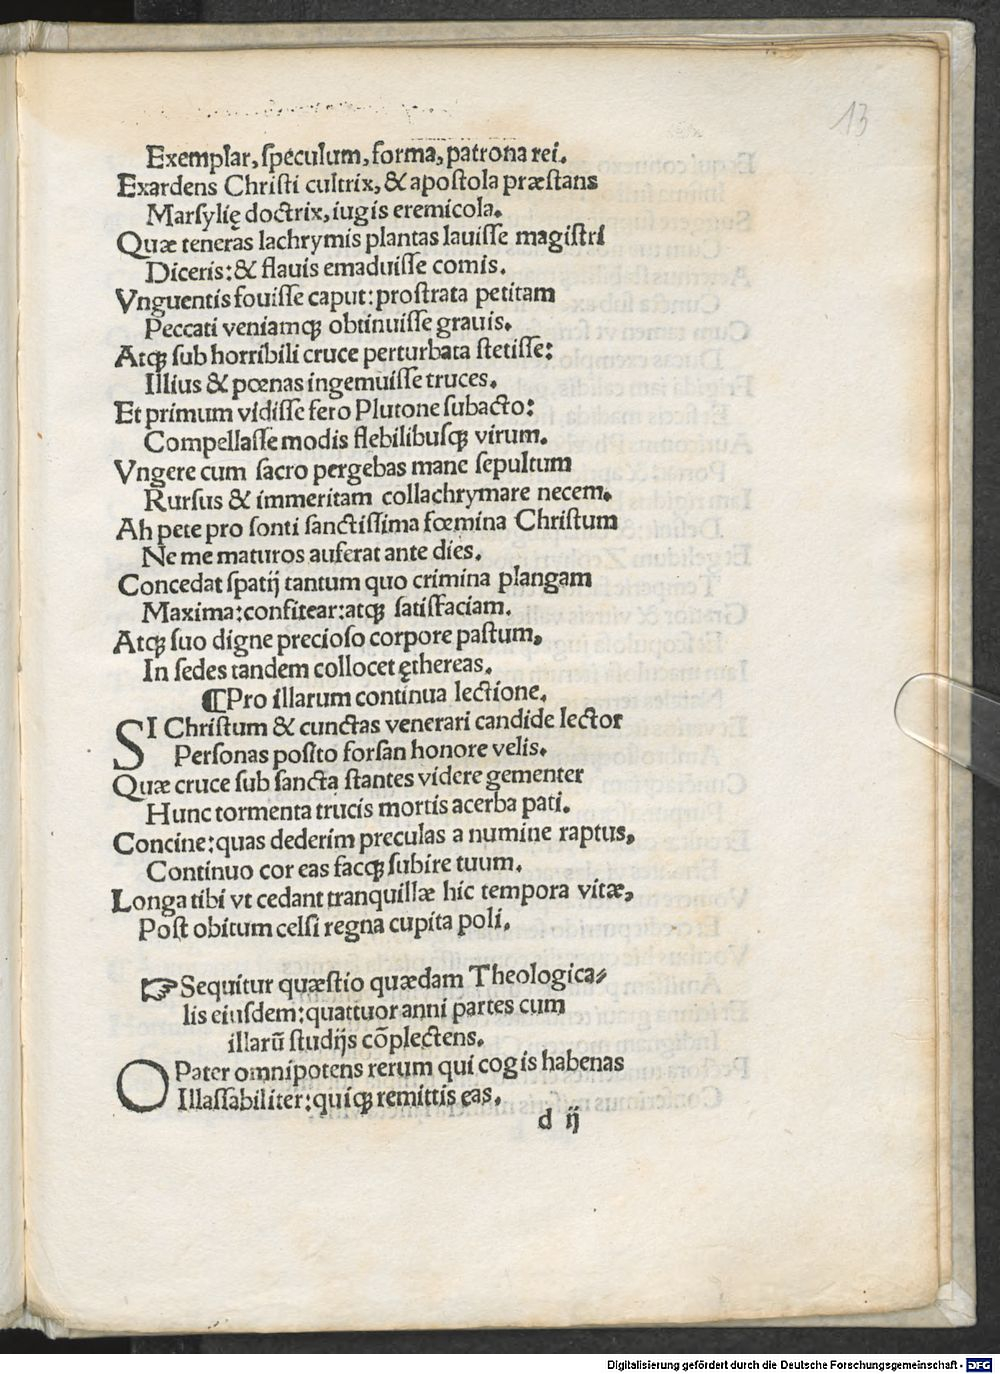 13
Exemplar, speculum, forma, patrona rei.
Exardens Christi cultrix, & apostola præstans
Marsylię doctrix, iugis eremicola.
Quæ teneras lachrymis plantas lauisse magistri
Diceris: & flauis emaduisse comis.
Vnguentis fouisse caput: prostrata petitam
Peccati veniamqꝫ obtinuisse grauis.
Atqꝫ sub horribili cruce perturbata stetisse:
Illius & pœnas ingemuisse truces.
Et primum vidisse fero Plutone subacto:
Compellasse modis flebilibusqꝫ virum.
Vngere cum sacro pergebas mane sepultum
Rursus & immeritam collachrymare necem.
Ah pete pro sonti sanctissima fœmina Christum
Ne me maturos auferat ante dies.
Concedat spatij tantum quo crimina plangam
Maxima: confitear: atqꝫ satisfaciam.
Atqꝫ suo digne precioso corpore pastum,
In sedes tandem collocet ęthereas.
¶Pro illarum continua lectione.
SI Christum & cunctas venerari candide lector
Personas posito forsan honore velis.
Quæ cruce sub sancta stantes videre gementer
Hunc tormenta trucis mortis acerba pati.
Concine: quas dederim preculas a numine raptus,
Continuo cor eas facqꝫ subire tuum.
Longa tibi vt cedant tranquillæ hic tempora vitæ,
Post obitum celsi regna cupita poli.
☞Sequitur quæstio quædam Theologica⸗
lis eiusdem: quattuor anni partes cum
illarū studijs cōplectens.
O Pater omnipotens rerum qui cogis habenas
Illassabiliter: quiqꝫ remittis eas.
d ij
Digitalisierung gefördert durch die Deutsche Forschungsgemeinschaft - DFG